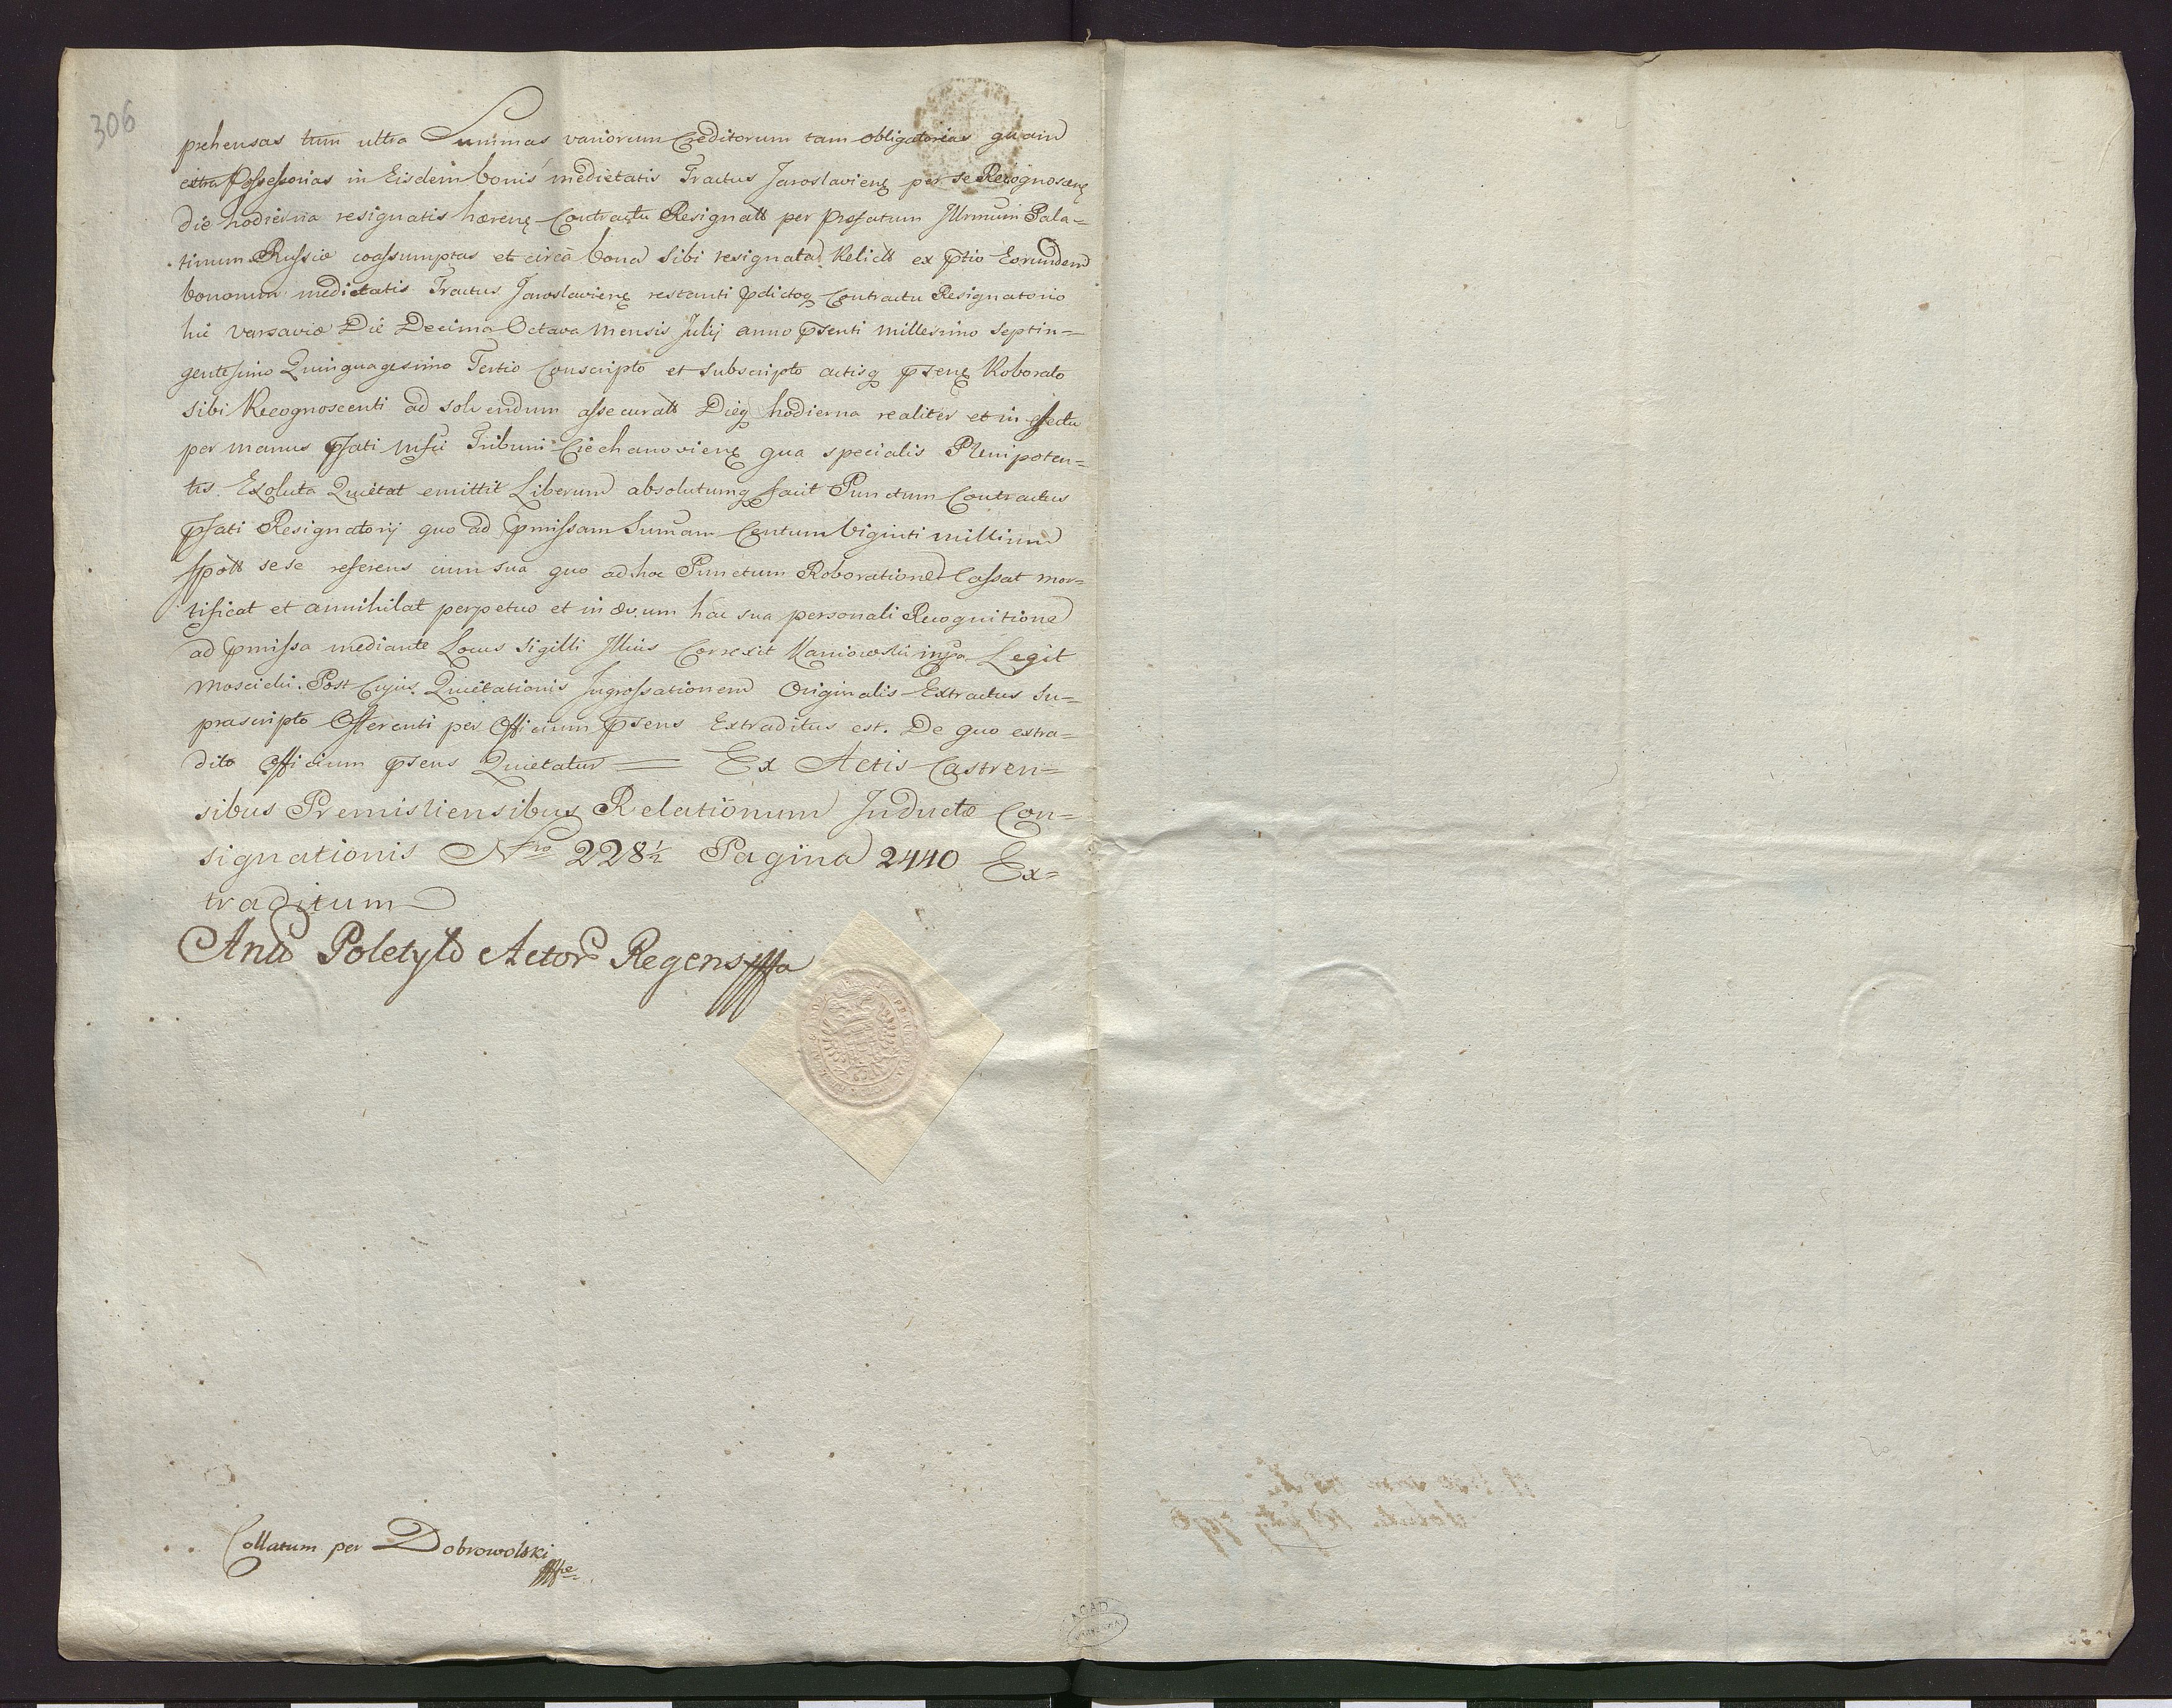 306
prehensas tum ultra Summas variorum Creditorum tam obligatorias quam
extra Possessorias in Eisdem bonis medietatis Tractus Jaroslavienę per se Recognoscenę
die hodierna resignatis hærenę Contractu Resignatt per præfatum Illrmum Pala=
tinum Russiæ coassumptas et circa bona sibi resignata Relictt ex ptio Eorundem
bonorum medietatis Tractus Jaroslavienę restanti pdictoq Contractu Resignatorio
hic Varsaviæ Die Decima Octava mensis Julij anno psenti millesimo septin=
gentesimo Quinquagesimo Tertio Conscripto et subscripto actisq psenę Roborato
sibi Recognoscenti ad solvendum assecuratt Dieq hodierna realiter et in effectu
per manus pfati Mfci Tribuni Ciechanovienę qua specialis Plenipoten=
tis Exoluta Quietat emittit Liberum absolutumq facit Punctum Contractus
pfati Resignatorij quo ad pmissam Sumam Centum Viginti millium
fpott sese referens cum sua quo ad hoc Punctum Roboratione Cassat mor=
tificat et annihilat perpetuo et in ævum hac sua personali Recognitione
ad pmissa mediante Locus Sigilli Illius Correxit Maniowski mpa Legit
Moscicki. Post Cujus Quietationis Ingrossationem Originalis Extractus Su=
prascripto Offerenti per Officium psens Extraditus est. De quo extra=
dito Officium psens Quietatur = Ex Actis Castren=
sibus Premisliensibus Relationum Inductæ Con=
signationis Nro 228½ Pagina 2440 Ex=
traditum
Poletyło Actor Regens
Collatum per Dobrowolski